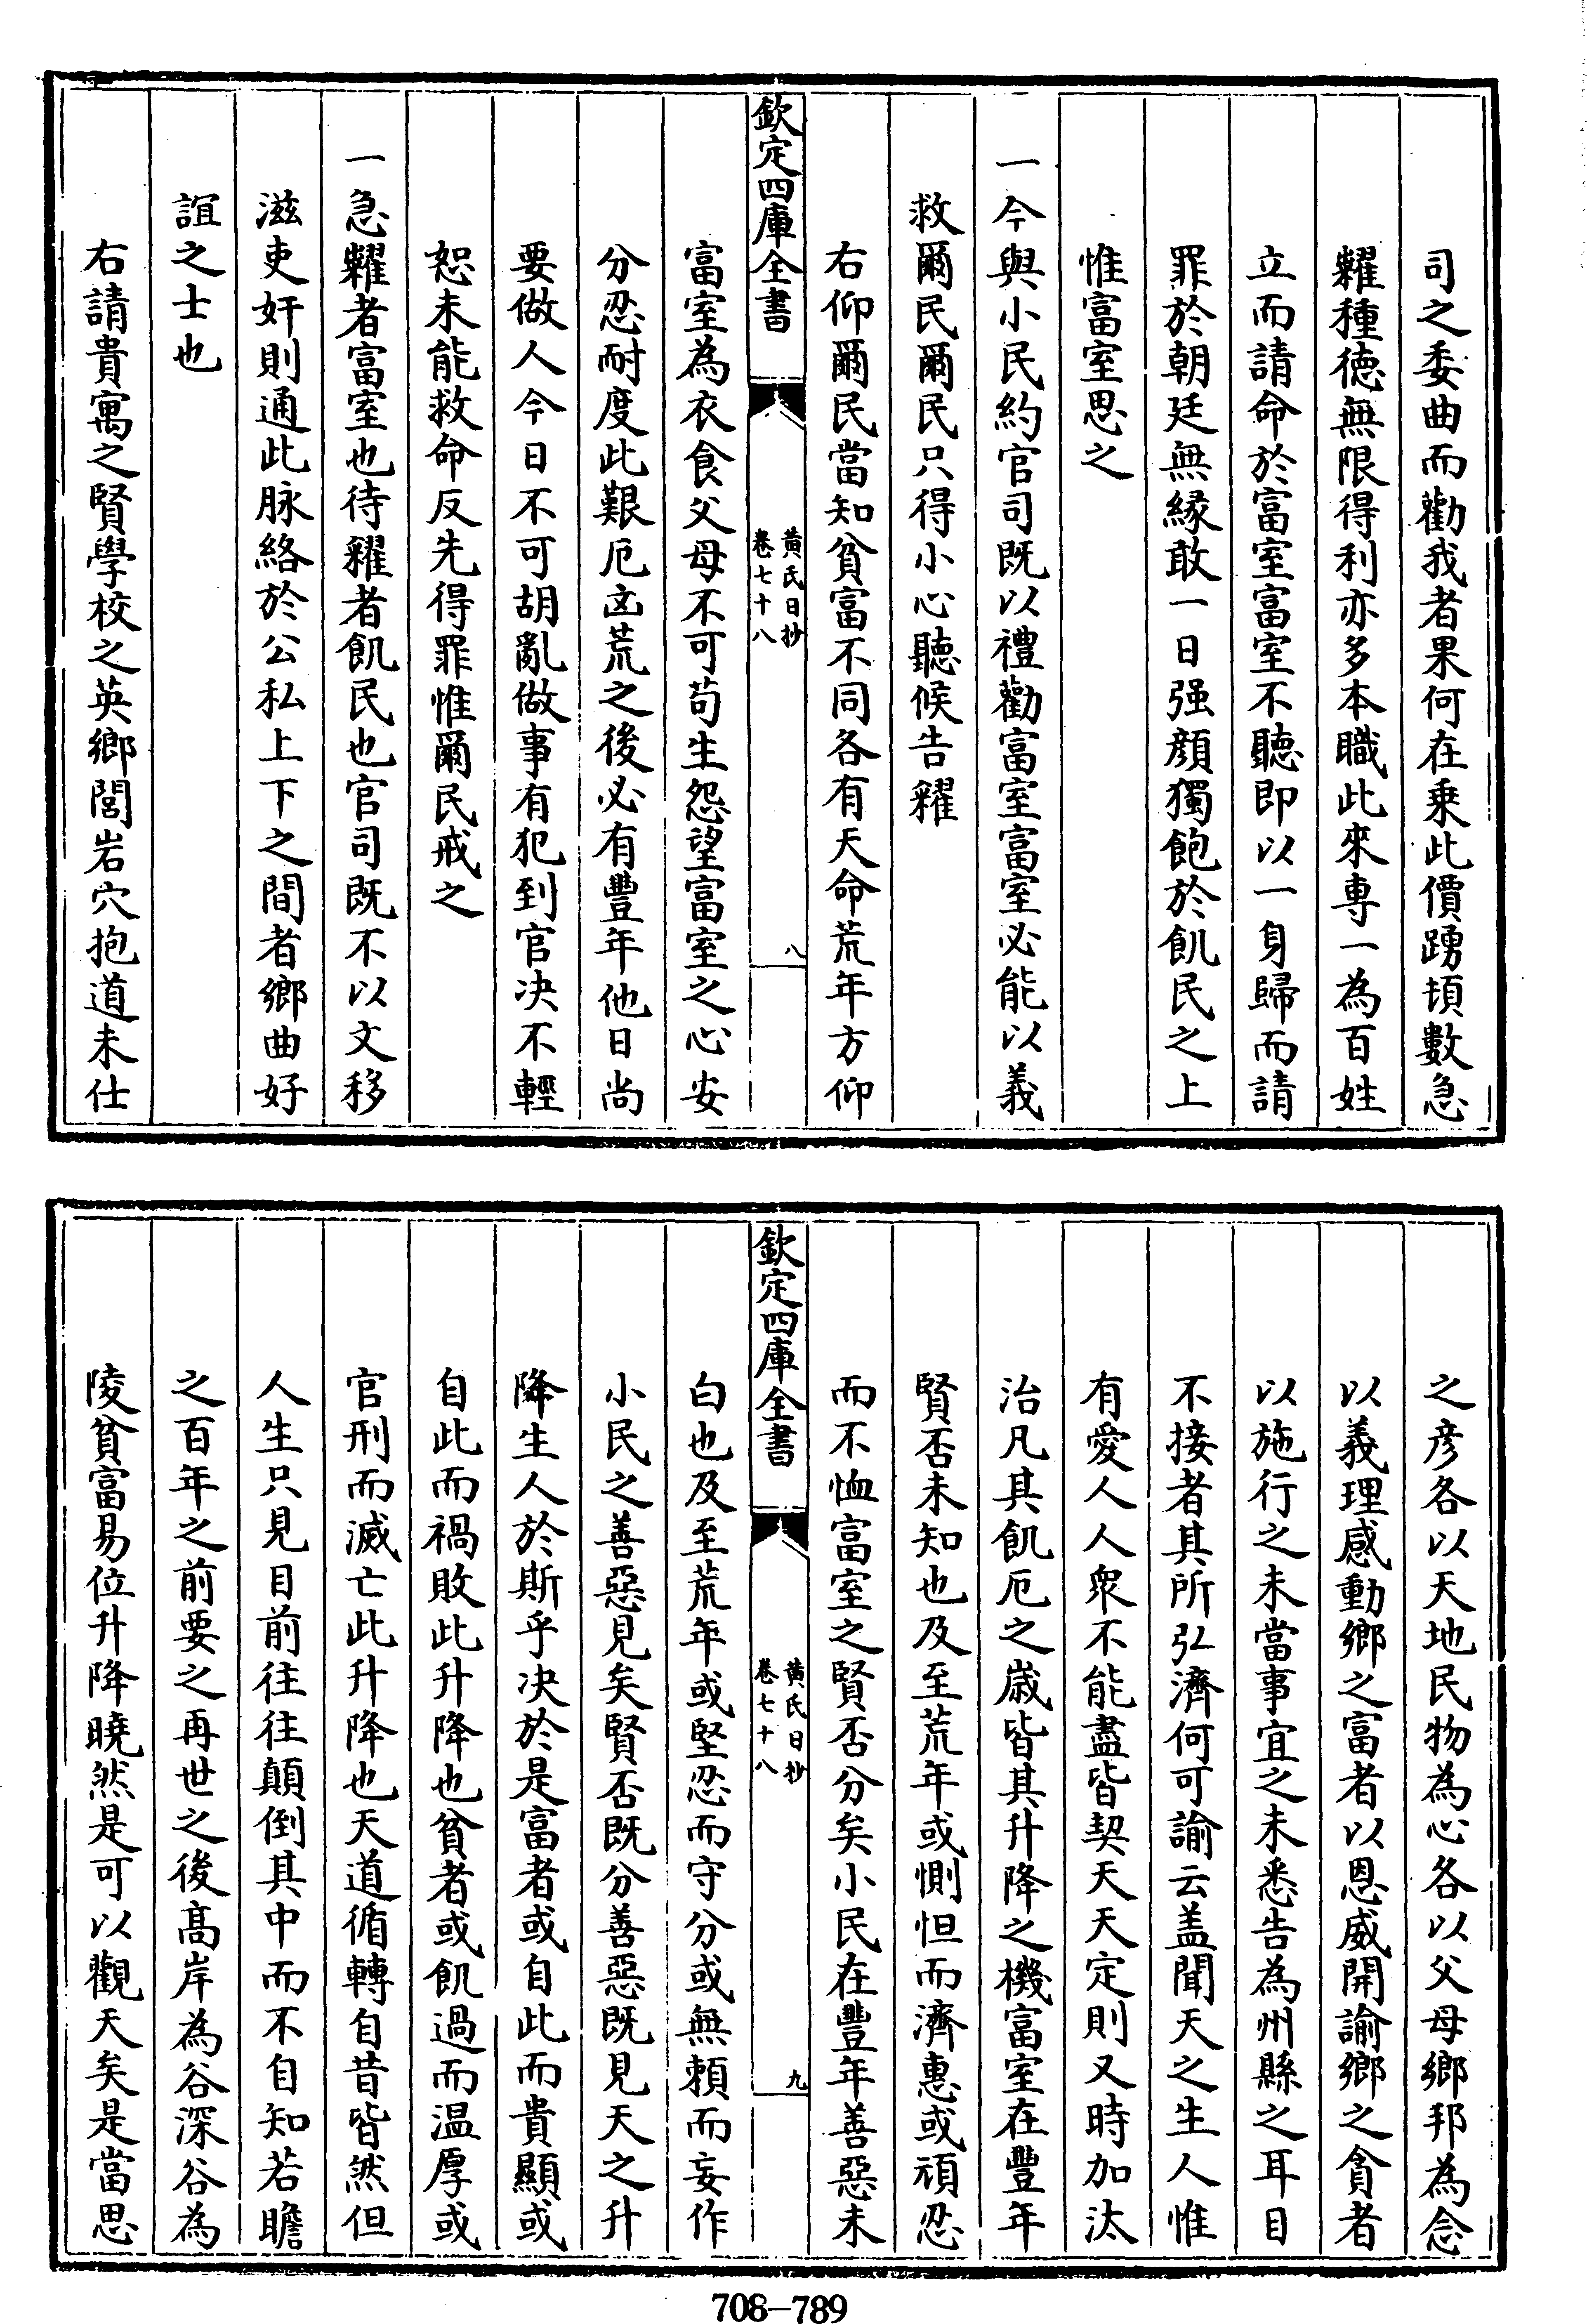 司之委曲而勸我者果何在乗此價踴頃數急
糶種徳無限得利亦多本職此來専一為百姓
立而請命於富室富室不聽即以一身歸而請
罪於朝廷無縁敢一日强顔獨飽於飢民之上
惟富室思之
一今與小民約官司既以禮勸富室富室必能以義
救爾民爾民只得小心聽候告糴
右仰爾民當知貧富不同各有天命荒年方仰
欽定四庫全書
黄氏日抄
卷七十八
八
富室為衣食父母不可苟生怨望富室之心安
分忍耐度此艱厄凶荒之後必有豐年他日尚
要做人今日不可胡亂做事有犯到官决不輕
恕未能救命反先得罪惟爾民戒之
一急糶者富室也待糴者飢民也官司既不以文移
滋吏奸則通此脉絡於公私上下之間者鄉曲好
誼之士也
右請貴寓之賢學校之英鄉閭岩穴抱道未仕
之彦各以天地民物為心各以父母鄉邦為念
以義理感動鄉之富者以恩威開諭鄉之貪者
以施行之未當事宜之未悉告為州縣之耳目
不接者其所弘濟何可諭云盖聞天之生人惟
有愛人人衆不能盡皆契天天定則又時加汰
治凡其飢厄之歳皆其升降之機富室在豐年
賢否未知也及至荒年或惻怛而濟惠或頑忍
而不恤富室之賢否分矣小民在豐年善惡未
欽定四庫全書
黄氏日抄
卷七十八
九
白也及至荒年或堅忍而守分或無頼而妄作
小民之善惡見矣賢否既分善惡既見天之升
降生人於斯乎决於是富者或自此而貴顯或
自此而禍敗此升降也貧者或飢過而温厚或
官刑而滅亡此升降也天道循轉自昔皆然但
人生只見目前往往顛倒其中而不自知若瞻
之百年之前要之再世之後髙岸為谷深谷為
陵貧富易位升降曉然是可以觀天矣是當思
708-789